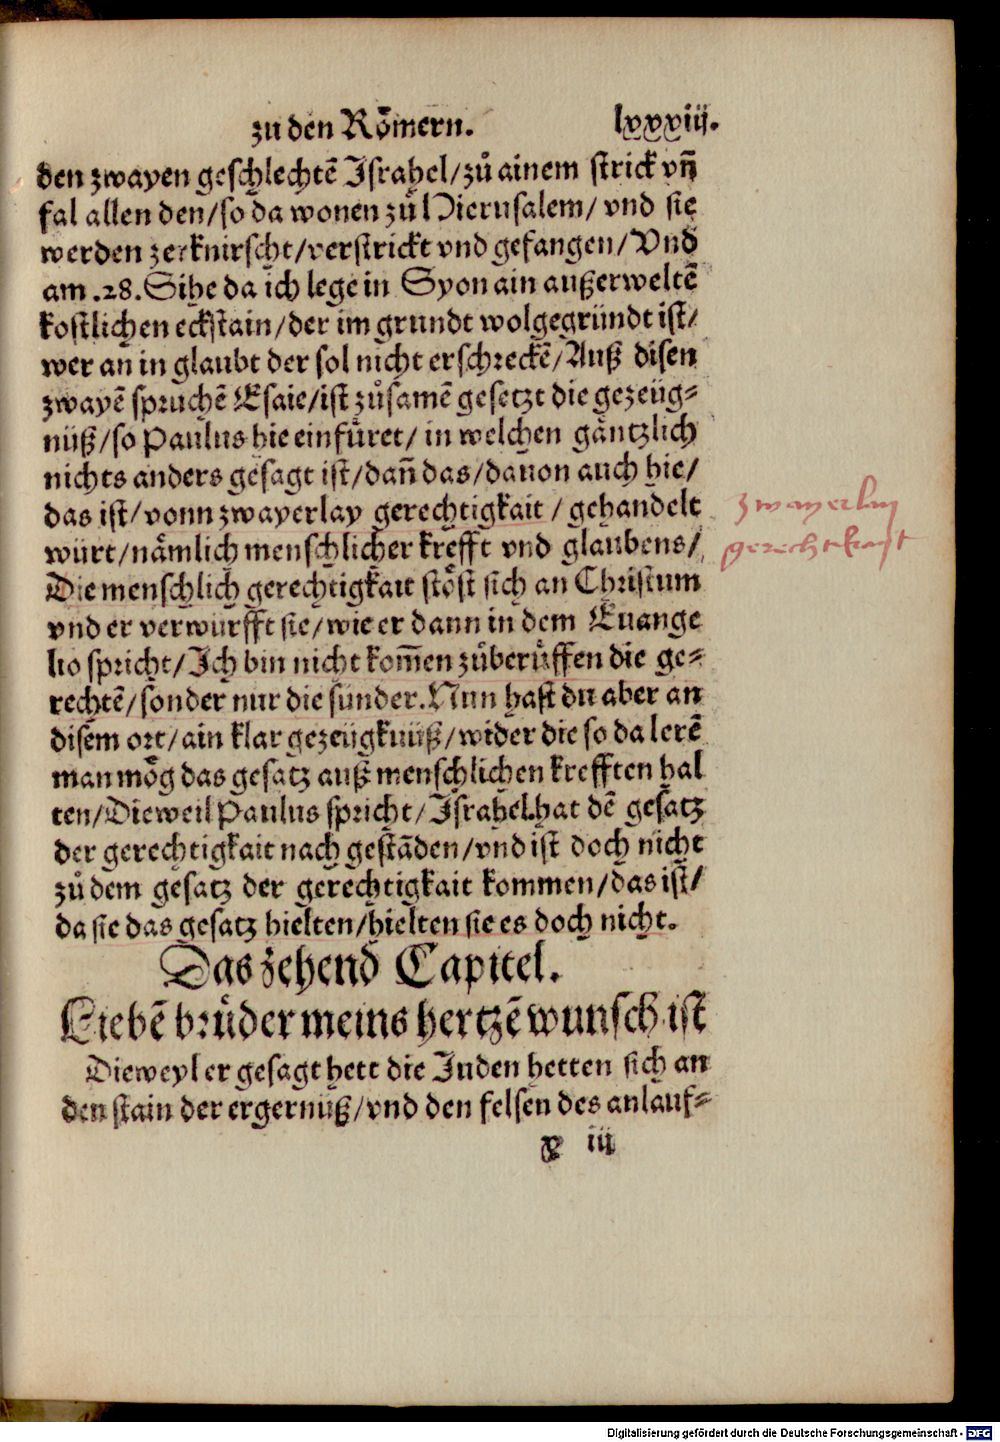 zu den Rőmern. lxxxiij.
den zwayen geschlechtē Israhel/zů ainem strick vñ
fal allen den/so da wonen zů Hierusalem/ vnd sie
werden zerknirscht/verstrickt vnd gefangen/Vnd
am .28. Sihe da ich lege in Syon ain außerweltē
kostlichen eckstain/der im grundt wolgegründt ist/
wer an in glaubt der sol nicht erschreckē/Auß disen
zwayē spruchē Esaie/ist zůsamē gesetzt die gezeüg⸗
nüß/so Paulus hie einfüret/ in welchen gäntzlich
nichts anders gesagt ist/dañ das/dauon auch hie/
das ist/vonn zwayerlay gerechtigkait / gehandelt
würt/nämlich menschlicher krefft vnd glaubens/
Die menschlich gerechtigkait stöst sich an Christum
vnd er verwurfft sie/wie er dann in dem Euange
lio spricht/Ich bin nicht kom̄en zůberůffen die ge⸗
rechtē/sonder nur die sünder. Nun hast du aber an
disem ort/ain klar gezeügknüß/wider die so da lerē
man mög das gesatz auß menschlichen krefften hal
ten/Dieweil Paulus spricht/Israhel hat dē gesatz
der gerechtigkait nach gestādē/vnd ist doch nicht
zů dem gesatz der gerechtigkait kommen/das ist/
da sie das gesatz hielten/hielten sie es doch nicht.
zwayerlay
gerechtekayt
Das zehend Capitel.
Liebē brüder meins hertzē wunsch ist
Dieweyl er gesagt hett die Juden hetten sich an
den stain der ergernüß/vnd den felsen des anlauf⸗
x iij
Digitalisierung gefördert durch die Deutsche Forschungsgemeinschaft - DFG